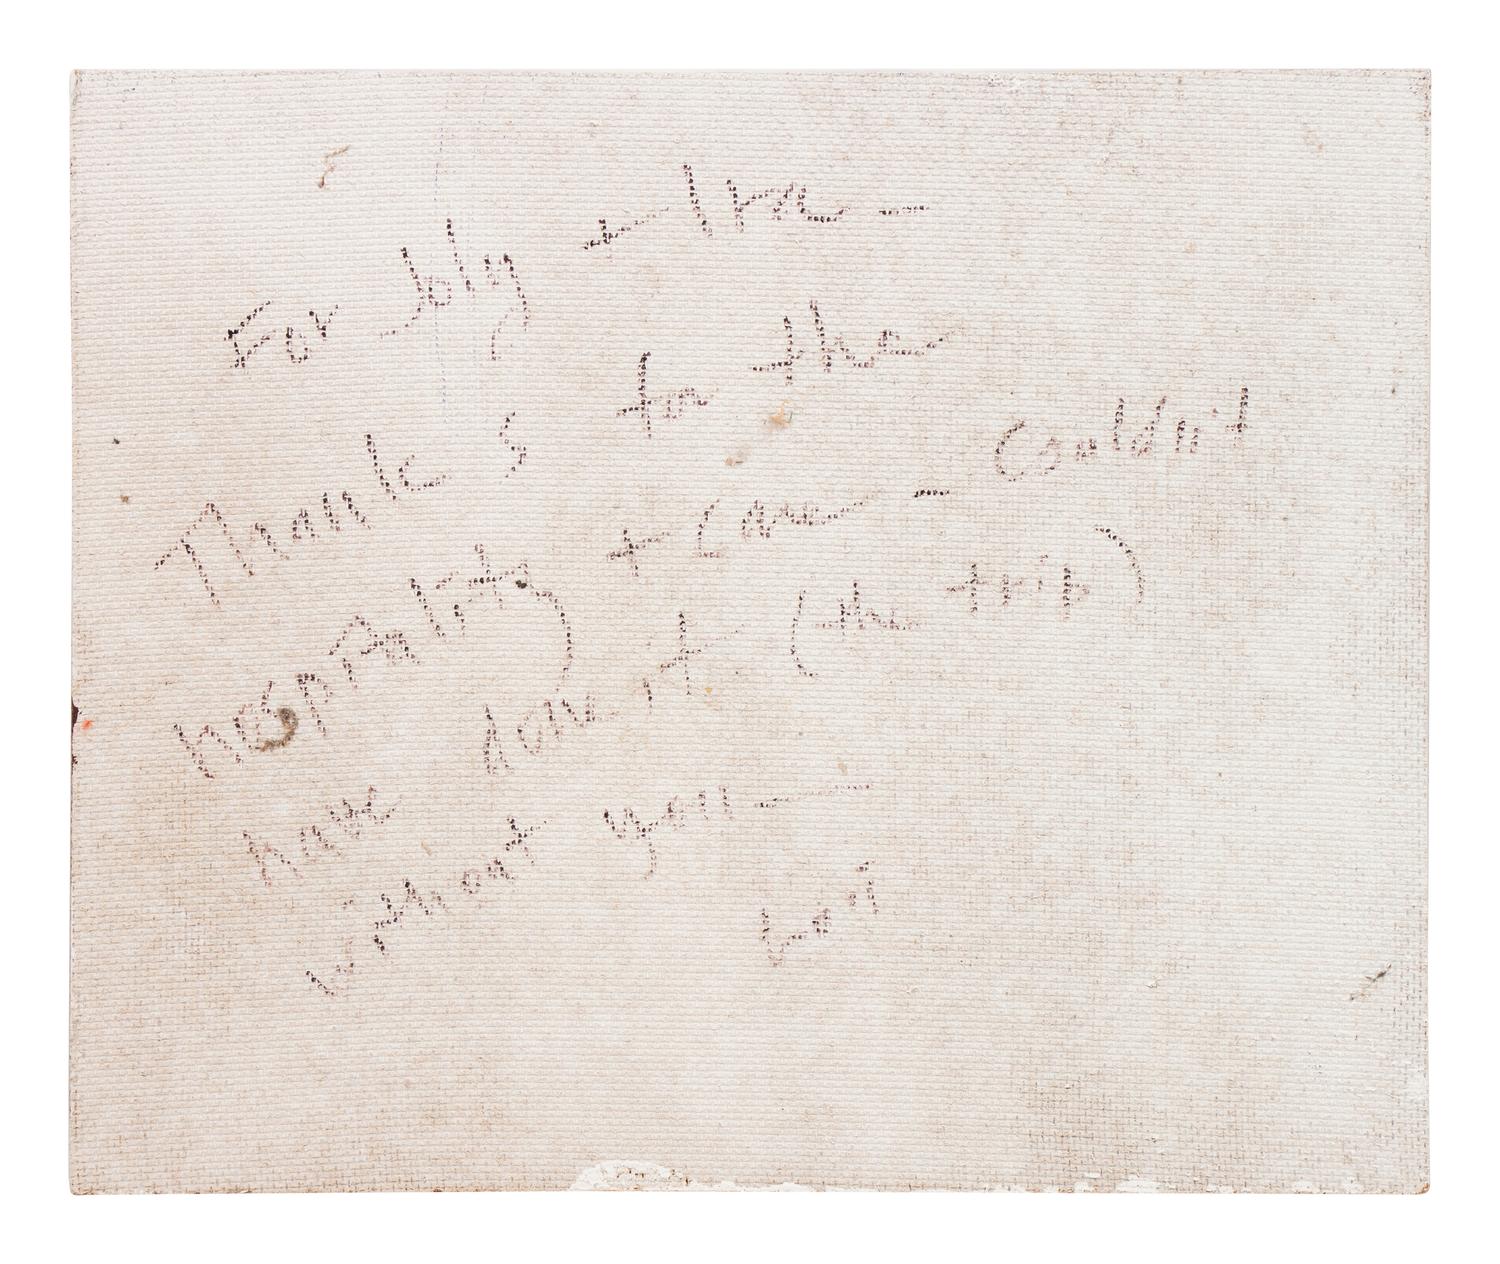 For Joly + Ira —
Thanks for the
hospality + Care — Couldn't
have done it (the trip)
without you —